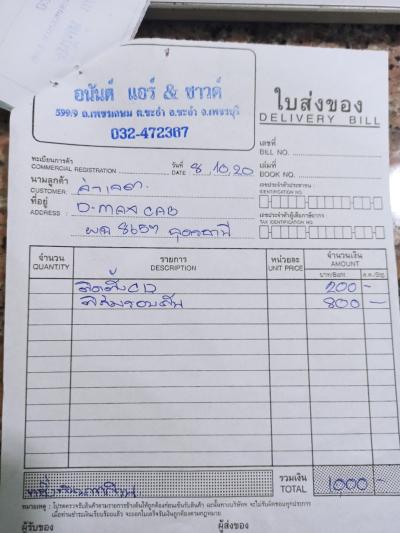 อนันต์ แอร์ & ซาวด์
599/9 ถ.เพชรเกษม ต.ชะอำ อ.ชะอำ จ.เพชรบุรี
032-472367
ใบส่งของ
DELIVERY BILL
ทะเบียนการค้า
COMMERCIAL REGISTRATION
วันที่
DATE 8, 10, 20
เลขที่
BILL NO.
นามลูกค้า
CUSTOMER:
เล่มที่
BOOK NO.
ที่อยู่
ADDRESS : D-MAX CAB
8657
เลขประจำตัวประชาชน
IDENTIFICATION NO.
เลขประจำตัวผู้เสียภาษีอากร
TAX IDENTIFICATION NO.
จำนวน รายการ หน่วยละ จำนวนเงิน
QUANTITY DESCRIPTION UNIT PRICE AMOUNT
บาท/Baht ส.ต./Stg.
ติดตั้ง CD 200 -
800 -
รวมเงิน
TOTAL 1,000 -
หนึ่งพันบาทถ้วน
หมายเหตุ : โปรดตรวจรับสินค้าตามรายการข้างต้นให้ถูกต้องก่อนเซ็นรับสินค้า
ผู้รับของ ผู้ส่งของ